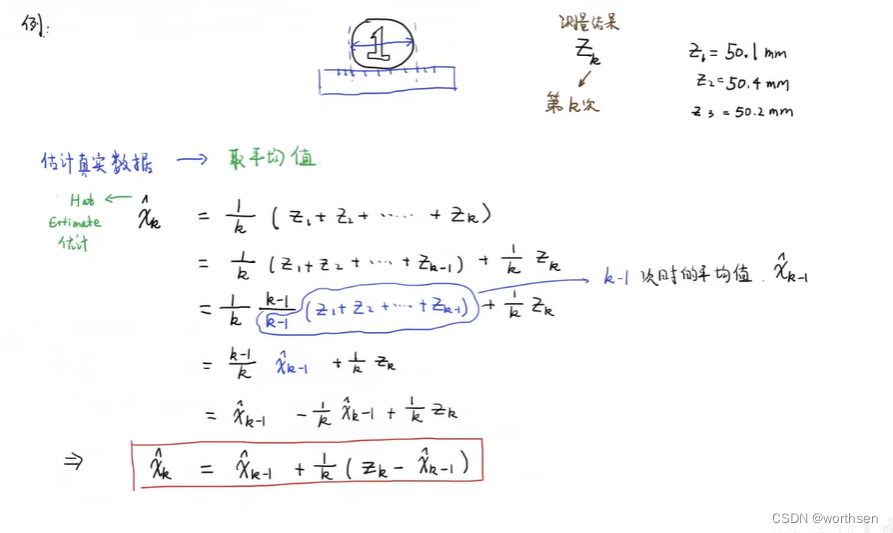 例:
1
测量结果
Z_k
第k次
z₁ = 50.1 mm
z₂ = 50.4 mm
z₃ = 50.2 mm
估计真实数据 → 取平均值
Hat
Estimate
估计
← x̂_k = 1/k (z₁ + z₂ + ····· + z_k)
= 1/k (z₁ + z₂ + ···· + z_{k-1}) + 1/k z_k
= 1/k (k-1)/(k-1) (z₁ + z₂ + ···· + z_{k-1}) + 1/k z_k → k-1 次时的平均值. x̂_{k-1}
= (k-1)/k x̂_{k-1} + 1/k z_k
= x̂_{k-1} - 1/k x̂_{k-1} + 1/k z_k
⇒ x̂_k = x̂_{k-1} + 1/k (z_k - x̂_{k-1})
CSDN @worthsen